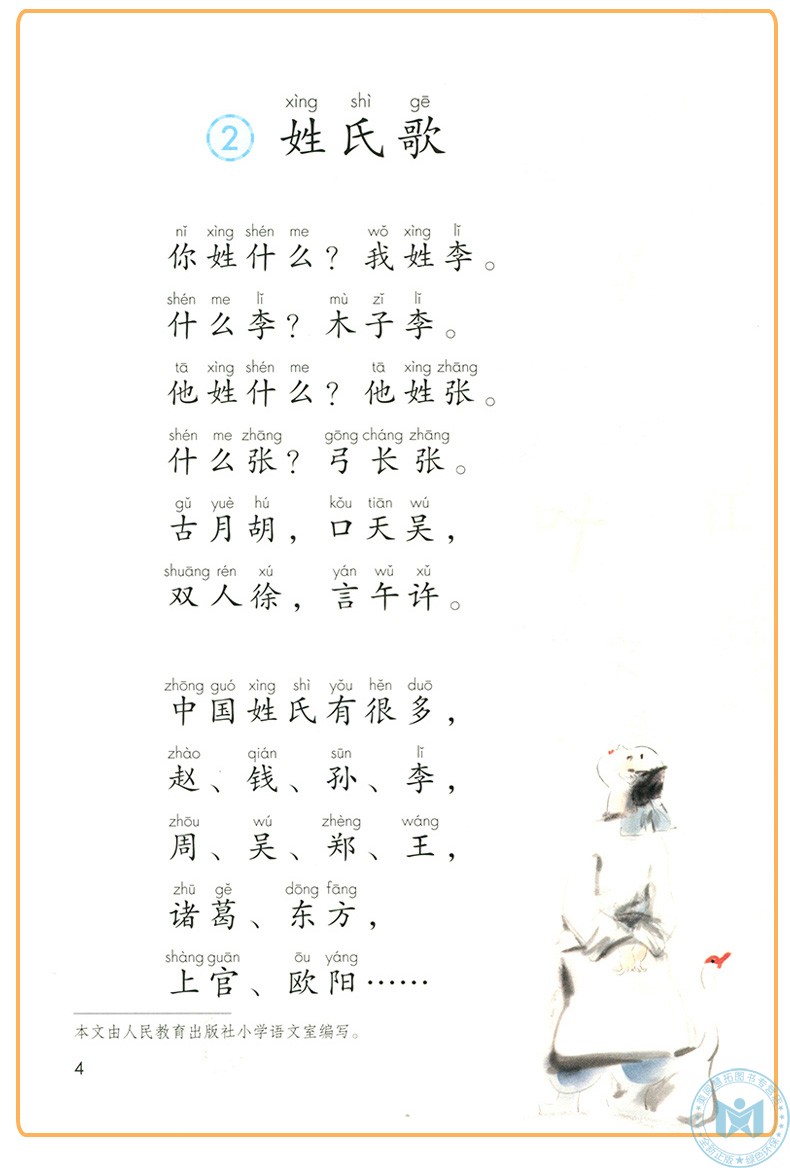 xìng shì gē
2 姓氏歌
nǐ xìng shén me wǒ xìng lǐ
你姓什么？我姓李。
shén me lǐ mù zǐ lǐ
什么李？木子李。
tā xìng shén me tā xìng zhāng
他姓什么？他姓张。
shén me zhāng gōng cháng zhāng
什么张？弓长张。
gǔ yuè hú kǒu tiān wú
古月胡，口天吴，
shuāng rén xú yán wǔ xǔ
双人徐，言午许。
zhōng guó xìng shì yǒu hěn duō
中国姓氏有很多，
zhào qián sūn lǐ
赵、钱、孙、李，
zhōu wú zhèng wáng
周、吴、郑、王，
zhū gě dōng fāng
诸葛、东方，
shàng guān ōu yáng
上官、欧阳……
本文由人民教育出版社小学语文室编写。
4